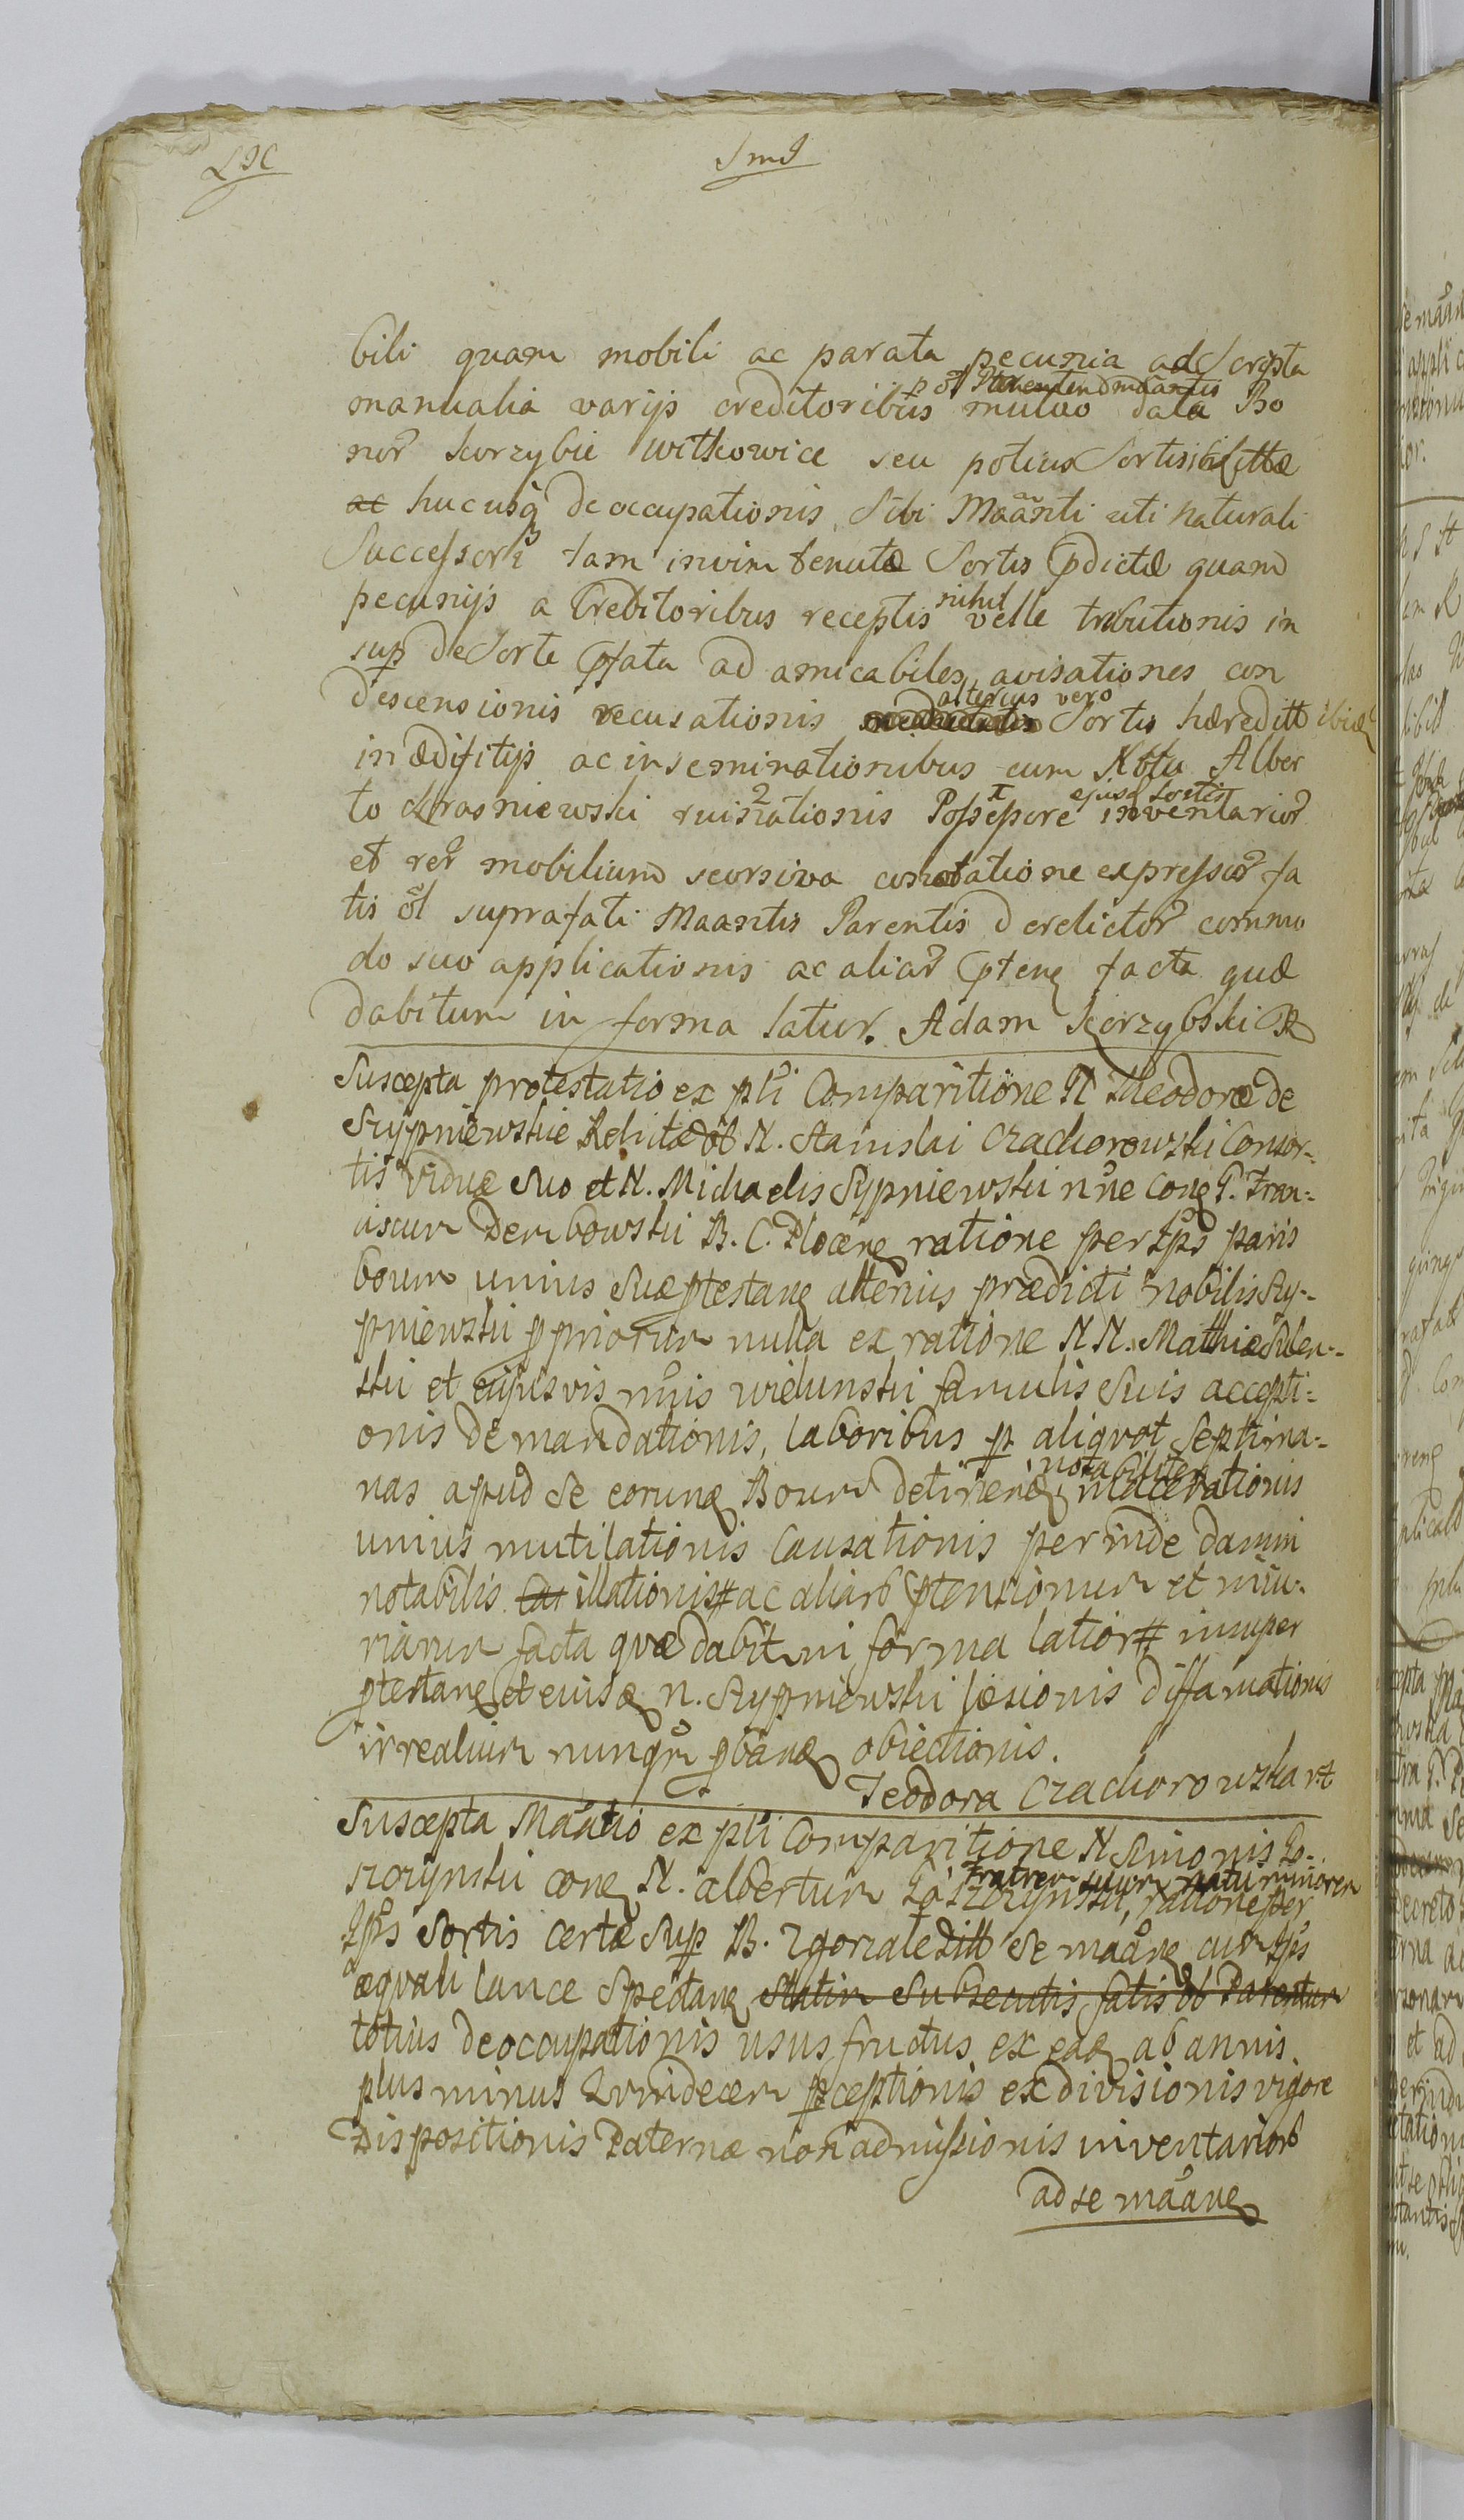 bili quam mobili ac parata pecunia ad Scripta
p ol Parentem maantis
manualia varijs creditoribus mutuo data Bo
nor Skorzybie Witkowice seu potius Sortis ibi sittae
ac hucusq deoccupationis Sibi Maanti uti naturali
Successori tam in vim tenutae Sortis pdictae quam
nihil
pecunijs a Creditoribus receptis velle tributionis in
sup de Sorte pfata ad amicabiles avisationes con
alterius vero
descensionis recusationis medietatis Sortis haereditt ibid
in aedifitijs ac inseminationibus cum Nbtu Alber
ejusd Sortis
to Krasniewski ruinationis Possessore inventarior
et rer mobilium seorsiva connotatione expressor fa
tis ol suprafati Maantis Parentis derelictor commo
do suo applicationis ac aliar pten facta quae
dabitur in forma latior. Adam Skorzybski
Suscepta protestatio ex pti Comparitione N Theodorae de
Sypniewskie Relictae ol N. Stanislai Czachorowski Consor-
tis viduae suo et N. Michaelis Sypniewski nne con G. Fran-
ciscum Dembowski B. C. Plocen ratione per Ips paris
boum unius suae ptestan alterius praedicti nobilis Sy-
pniewski ppriorum nulla ex ratione N N. Mathiae
ski et cujusvis nnis Wielunski famulis suis accepti-
onis demandationis, laboribus p aliquot septima-
notabiliter
nas apud se eorund Boum detinen, macerationis
unius mutilationis causationis perinde damni
notabilis illationis # ac aliar ptensionum et iniu-
riarum facta quae dabit in forma latior # insuper
ptestan et eiusd N. Sypniewski laesionis diffamationis
irrealium nunqm pband obiectionis.
Teodora Czachorowska
Suscepta Maatio ex pti Comparitione N Simonis Go-
Fratrem suum natu minorem
szczynski con N. Albertum Goszczynski, ratione per
Ips Sortis certae sup B. Zgorzale sitt se maan cum Ips
aequali lance spectan statim subsecutis fatis ol Parentum
totius deoccupationis ususfructus ex ead ab annis
plus minus Quindecem pceptionis exdivisionis vigore
Dispositionis Paternae non admissionis inventarior
ad se maan